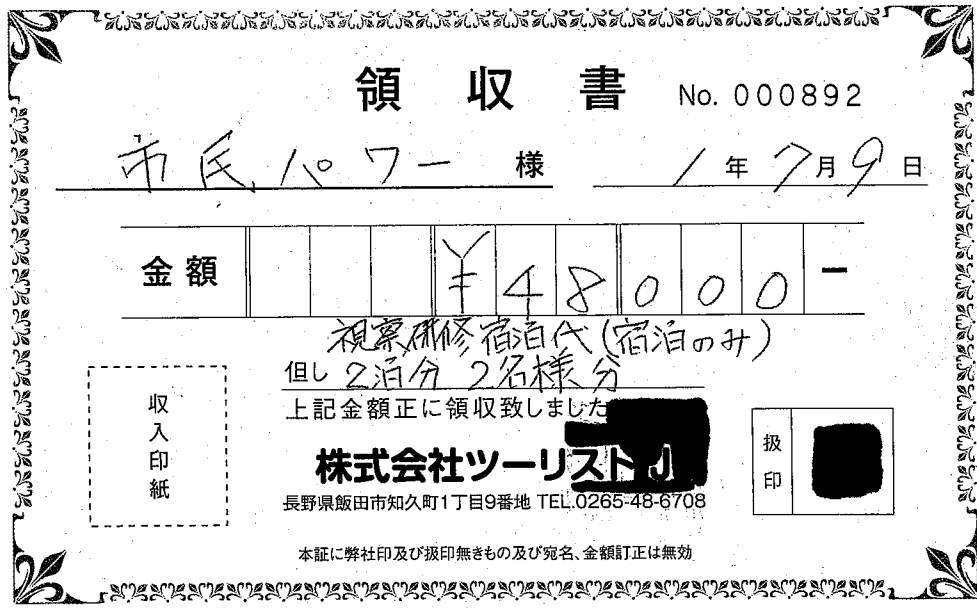 領収書 No. 000892
市民パワー 様 1年7月9日
金額 ¥48000-
視察研修宿泊代(宿泊のみ)
但し 2泊分 2名様分
上記金額正に領収致しました
収入印紙
株式会社ツーリストJ
扱印
長野県飯田市知久町1丁目9番地 TEL.0265-48-6708
本証に弊社印及び扱印無きもの及び宛名、金額訂正は無効